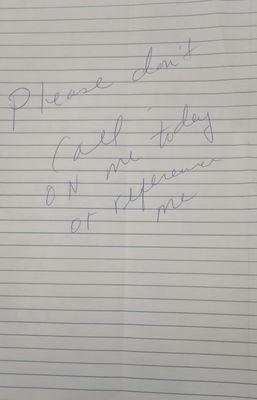 Please don't
Call
ON me today
or reference
me